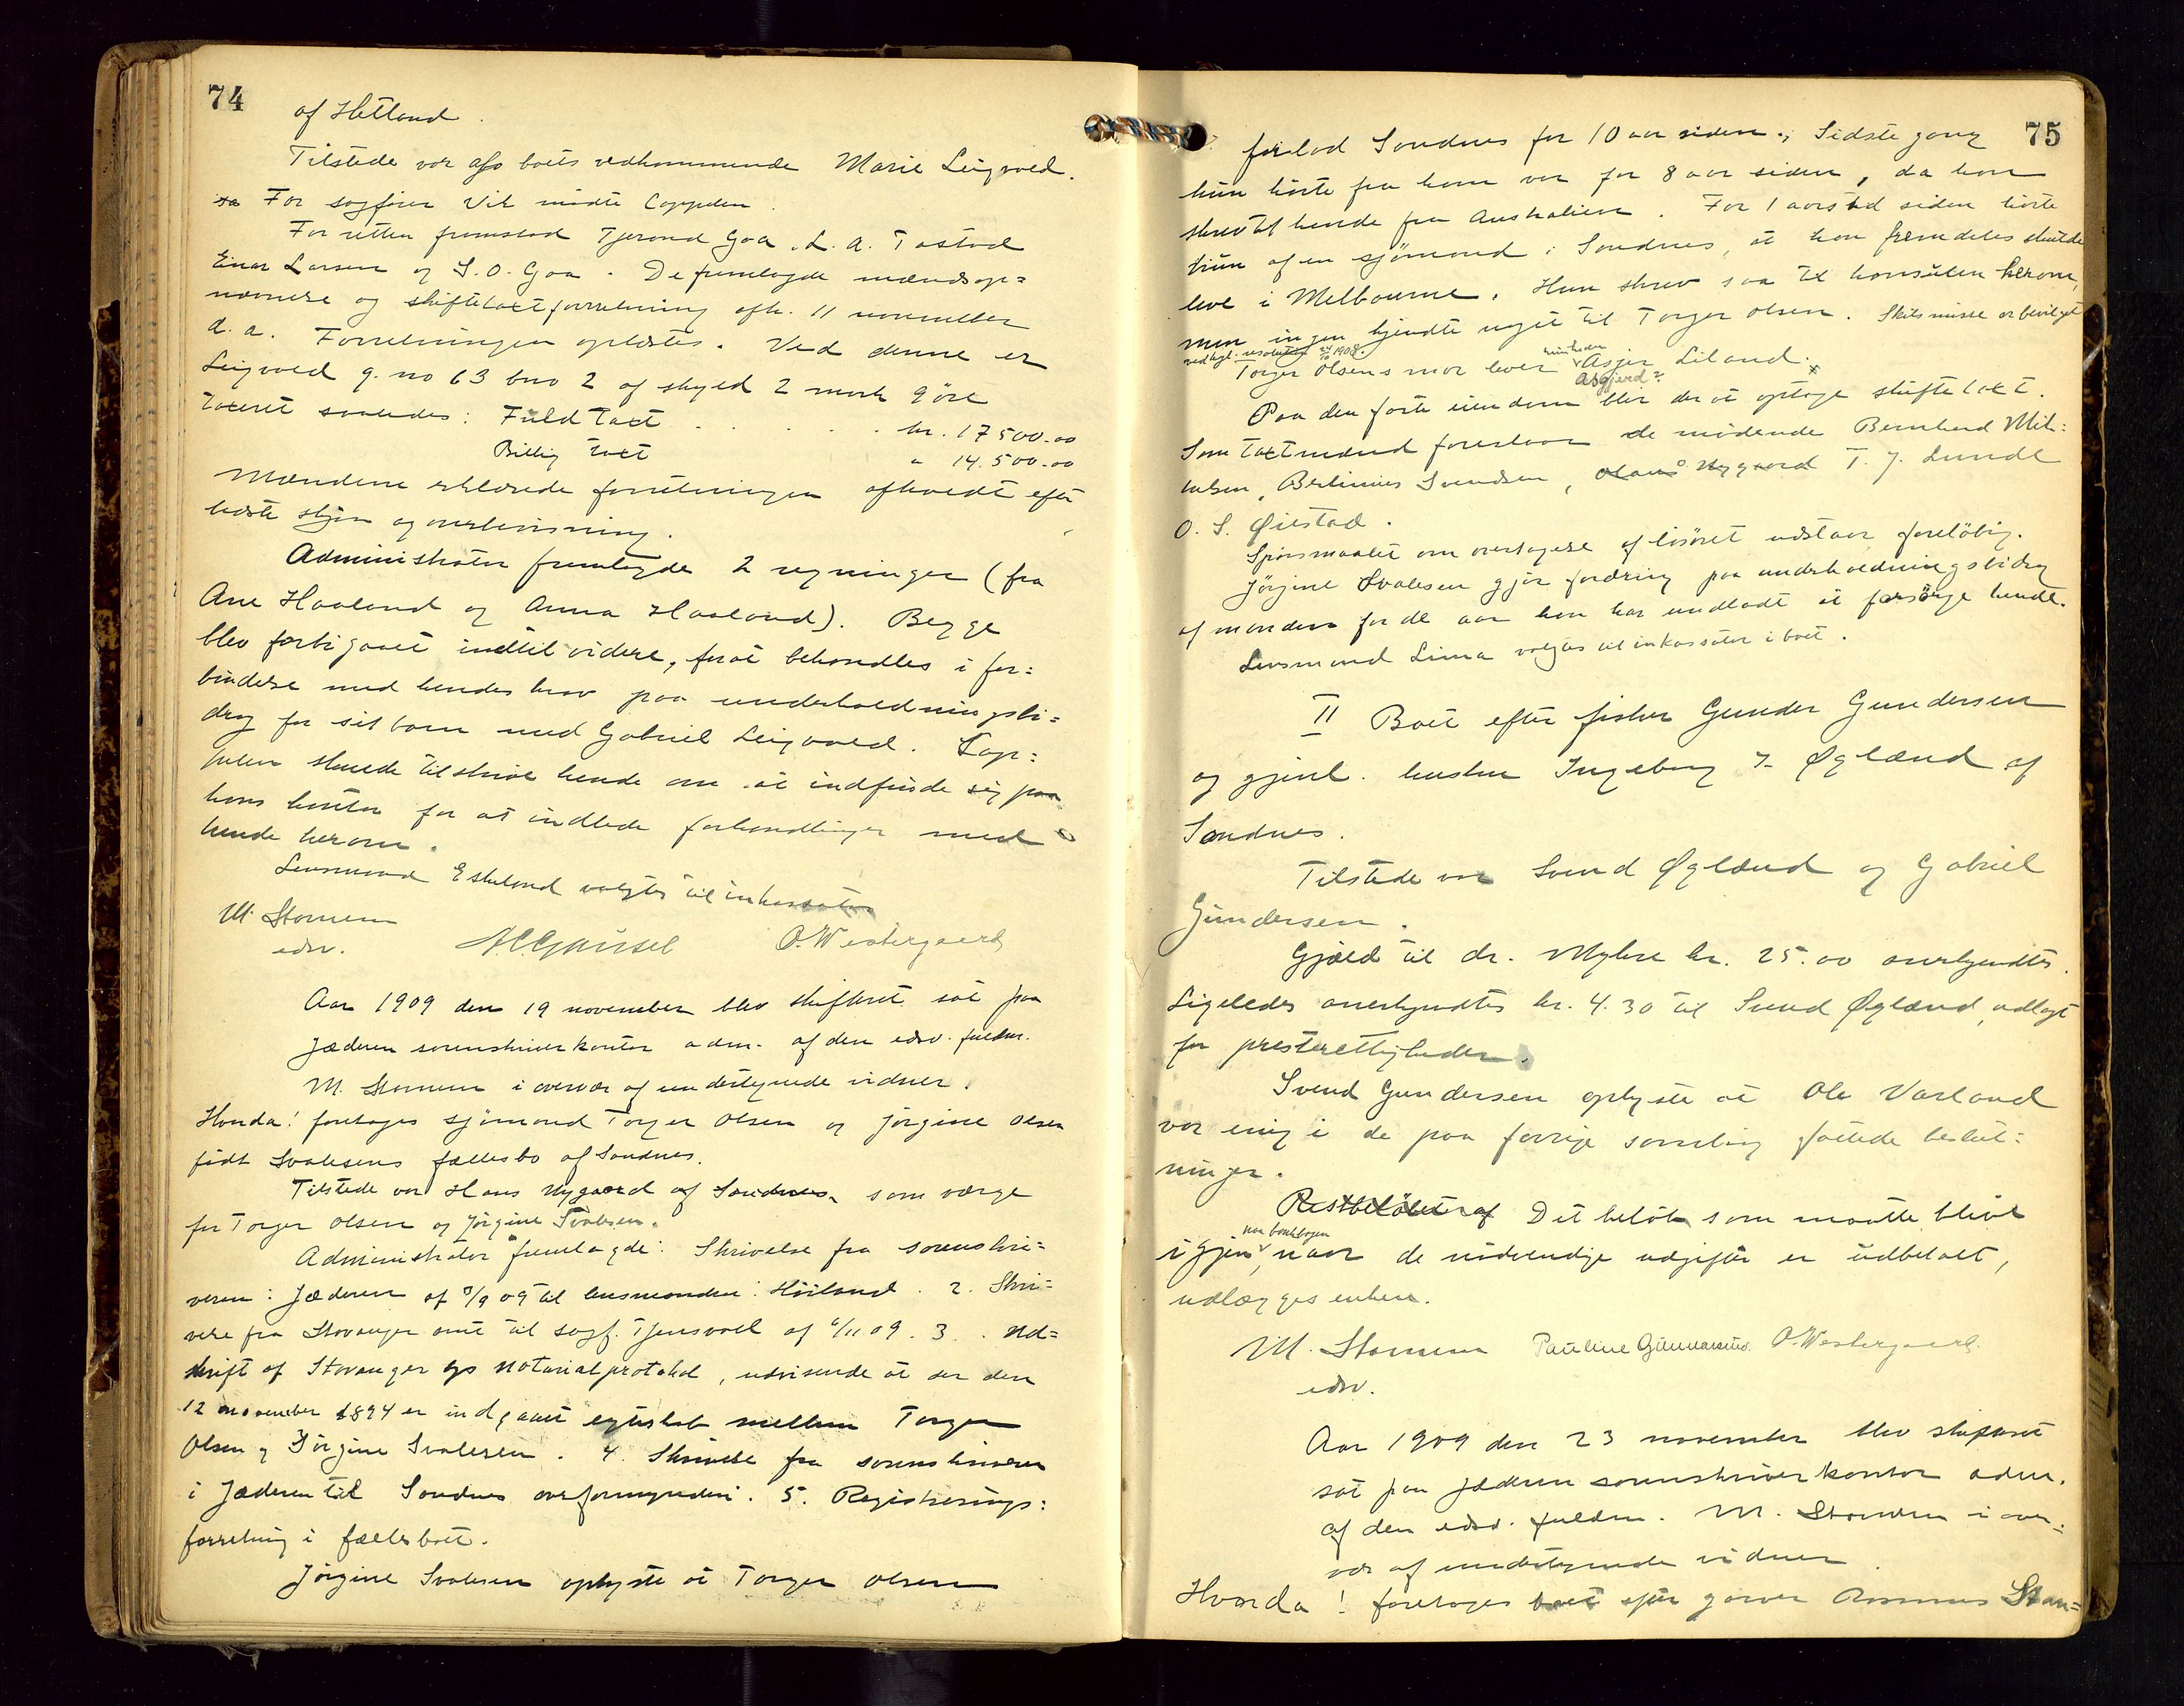 74
af Hetland.
Tilstede var afs boets vedkommende Marie Leigvold.
For sagfører Vik mødte Coppelen.
For retten fremstod Tjerand Goa, L. A. Tastad
Einar Larsen og S. O. Goa. De fremlagde mændsop=
nævnelse og skiftetaxtforretning afh. 11 november
d. a. Forretningen oplæstes. Ved denne er
Leigvold g. no 63 bno 2 af skyld 2 mark 9 øre
taxeret saaledes: Fuld taxt . . . . . kr. 17500.00
Billig taxt " 14.500.00
Mændene erklærede forretningen afholdt efter
bedste skjøn og overbevisning.
Administrator fremlagde 2 regninger (fra
Ane Haaland og Anna Haaland). Begge
blev forbigaaet indtil videre, forat behandles i for=
bindelse med hendes krav paa underholdningsbi=
drag for sit barn med Gabriel Leigvold. Cop=
pelen skulde tilskrive hende om at indfinde sig paa
hans kontor for at indlede forhandlinger med
hende herom.
Lensmand Eskeland valgtes til inkassator
M. Stamnen
edsv. O. Westergaard
Aar 1909 den 19 november blev skifteret sat paa
Jæderen sorenskriverkontor adm. af den edsv. fuldm.
M. Stamnen i overvær af undertegnede vidner.
Hvorda! foretages sjømand Torger Olsen og Jørgine Olsen
født Svalesens fællesbo af Sandnes.
Tilstede var Hans Nygaard af Sandnes som værge
for Torger Olsen og Jørgine Svalesen.
Administrator fremlagde: Skrivelse fra sorenskri=
veren i Jæderen af 8/9 09 til lensmanden i Høiland. 2. Skri=
velse fra Stavanger amt til sagf. Tjensvold af 6/11 09. 3. Ud=
skrift af Stavanger bys notarialprotokol, udvisende at der den
12 november 1894 er indgaaet egteskab mellem Torger
Olsen og Jørgine Svalesen. 4. Skrivelse fra sorenskriveren
i Jæderen til Sandnes overformynderi. 5. Registrerings=
forretning i fællesboet.
Jørgine Svalesen oplyste at Torger Olsen
75
forlod Sandnes for 10 aar siden. Sidste gang
hun hørte fra ham var for 8 aar siden, da han
skrev til hende fra Australien. For 1 aarstid siden hørte
hun af en sjømand i Sandnes, at han fremdeles skulde
leve i Melbourne. Hun skrev saa til konsulen herom,
men ingen kjendte noget til Torger Olsen. Skilsmisse er bevilget
ved kgl. resolution 24/10 1908.
Torger Olsens mor lever Asgjer Liland.
Asgjerd?
Paa den faste eiendom blir der at optage skiftetaxt.
Som taxtmænd foreslaar de mødende Bernhard Mik=
kelsen, Bertinius Svendsen, Olaus Nygaard T. J. Lunde
O. S. Øiestad.
Spørsmaalet om overtagelse af løsøret udstaar foreløbig.
Jørgine Svalesen gjør fordring paa underholdningsbidrag
af manden for de aar han har undladt at forsørge hende.
Lensmand Lima valgtes til inkassator i boet.
II Boet efter fisker Gunder Gundersen
og gjenl. hustru Ingeborg f. Øglænd af
Sandnes.
Tilstede var Svend Øglænd og Gabriel
Gundersen.
Gjæld til dr. Myhre kr. 25.00 anerkjendtes.
Ligeledes anerkjendtes kr. 4.30 til Svend Øglænd, udlagt
for presterettigheder.
Svend Gundersen oplyste at Ole Varland
var enig i de paa forrige samling fattede beslut=
ninger.
Restbeløbet af Det beløb som maatte blive
igjen, naar de nødvendige udgifter er udbetalt,
udlægges enken.
M. Stamnen Pauline Gunnarsen. O. Westergaard.
edsv.
Aar 1909 den 23 november blev skifteret
sat paa Jæderen sorenskriverkontor adm.
af den edsv. fuldm. M. Stamnen i over=
vær af undertegnede vidner.
Hvorda! foretages boet efter garver Rasmus Stan=